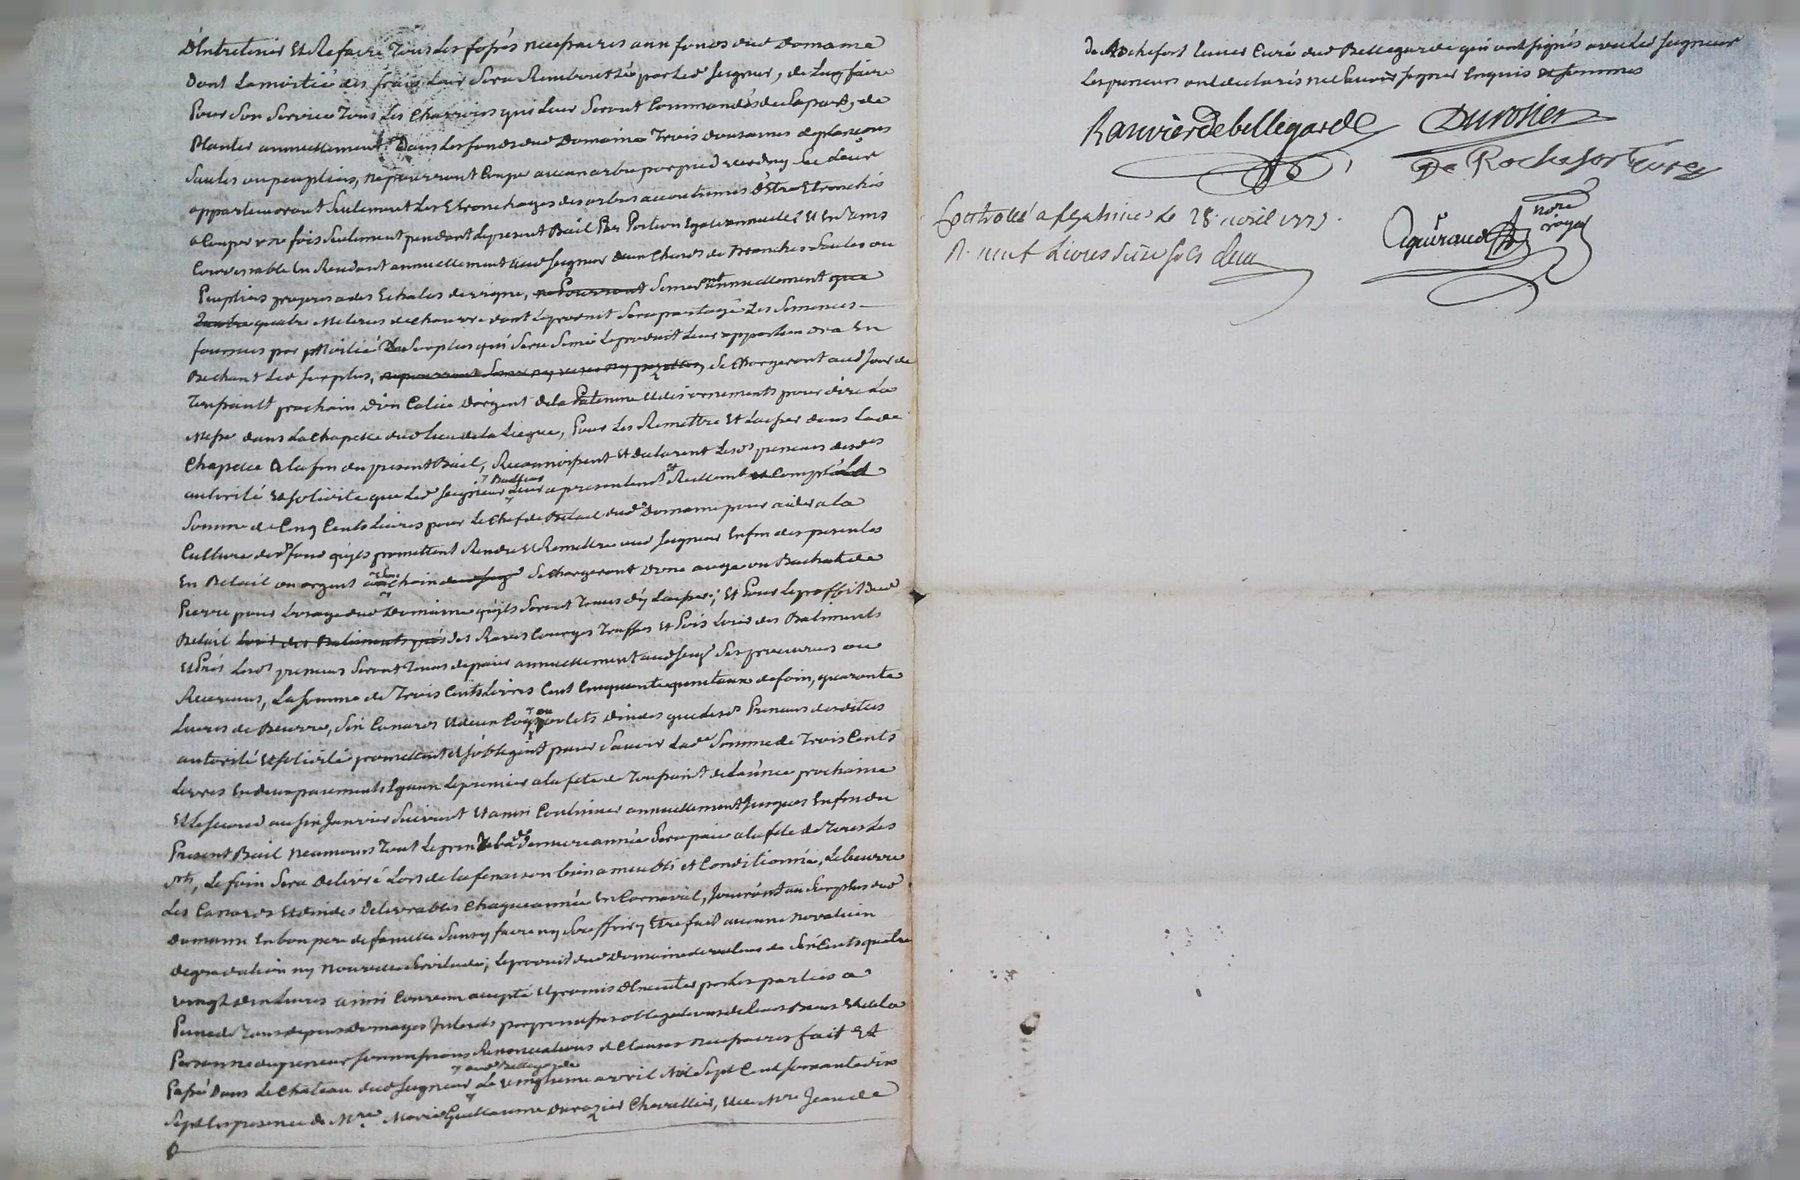 D'Entretenir et Refaire tous les fossés necessaires aux fonds dud Domaine
dont la moitié des frais leur sera Remboursée par led seigneur, de luy faire
pour son service tous les charrois qui leur seront commandés de sa part, de
planter annuellement dans les fonds dud Domaine trois douzaines de plançons
saules ou peupliers, ne pourront couper aucun arbre par pied verd ny sec leur
appartiendront seulement les Etronchages des arbres accoutumés d'Etre Etronchés
a couper une fois seulement pendant le present Bail Par Portion Egale annuelle et en tems
convenable en Rendant annuellement aud seigneur deux chards de Branches saules ou
Peupliers propres a des Echalas de vigne, ne Pourront semeront annuellement que
quatre Metures de chanvre dont le produit sera partagé les semences
fournies par Moitié Du surplus qui sera semé le produit leur appartiendra En
Bechant led surplus, se chargeront aud jour de
Toussaint prochain d'un Calice d'argent de la Patenne et des ornements pour dire La
Messe dans La chapelle dud lieu de la Liegue, Pour les Remettre et laisser dans lade
chapelle a la fin du present Bail, Reconnoissent et declarent lesds preneurs desdes
autorité et solidité que led seigneur Bailleur leur a presentement Reellement et compté La
somme de Cinq Cents Livres pour le chef de Betail dud Domaine pour aider a la
Culture desd fonds qu'ils promettent Rendre et Remettre aud seigneur Enfin des presentes
En Betail ou argent a son choix se chargeront d'une auge ou Bachat de
Pierre pour l'usage dud Domaine qu'ils seront tenus d'y laisser; et Pour le proffit dud
Betail loix des Batiments prés des Raves Courges Truffes et Pois loix des Batiments
et Prés Lesds preneurs seront tenus de paier annuellement aud seigr ses procureurs ou
Receveurs, La somme de Trois Cents Livres Cent Cinquante quintaux de foin, quarante
Livres de Beurre, six Canards et deux Coqs ou poulets d'indes que lesds Preneurs desdites
autorité et solidité promettent et s'obligent paier sçavoir lade somme de Trois Cents
Livres En deux paiements Egaux le premier a la fete de Toussaint de l'année prochaine
Et le second au six Janvier suivant et ainsi Continuer annuellement Jusques Enfin du
Present Bail neamoins tout le prix de lade derniere année sera paié a la fete de Tous les
sts, Le foin sera delivré Lors de la fenaison bien ameubli et Conditionné, Le beurre
Les Canards et d'indes delivrables Chaque année En Carnaval, Jouiront au surplus dud
Domaine En bon pere de famille sans y faire ny souffrir y Etre fait aucune novation
degradation ny nouvelle servitude; Le produit dud Domaine de valeur de six Cents quatre
vingt dix Livres ainsi Convenu accepté et promis d'Executer par les parties a
Peine de tous depens domages Interets par promesses obligations de leurs Biens et de la
Personne du preneur soumissions Renonciations et Clauses necessaires fait et
Passé Dans Le chateau dud seigneur aud Bellegarde Le vingtieme avril Mil sept Cent soixante dix
sept En presence de Mre Marie Guillaume Durozier Chevallier, et de Mre Jean de
de Rochefort Curé dud Bellegarde qui ont signés avec Led seigneur
Les preneurs ont declarés ne sçavoir signer Enquis et sommés
Ranvier de bellegarde Durosier
De Rochefort Curé
Controllé a le 28 avril 1777.
R. neuf Livres seize sols
nore
royal